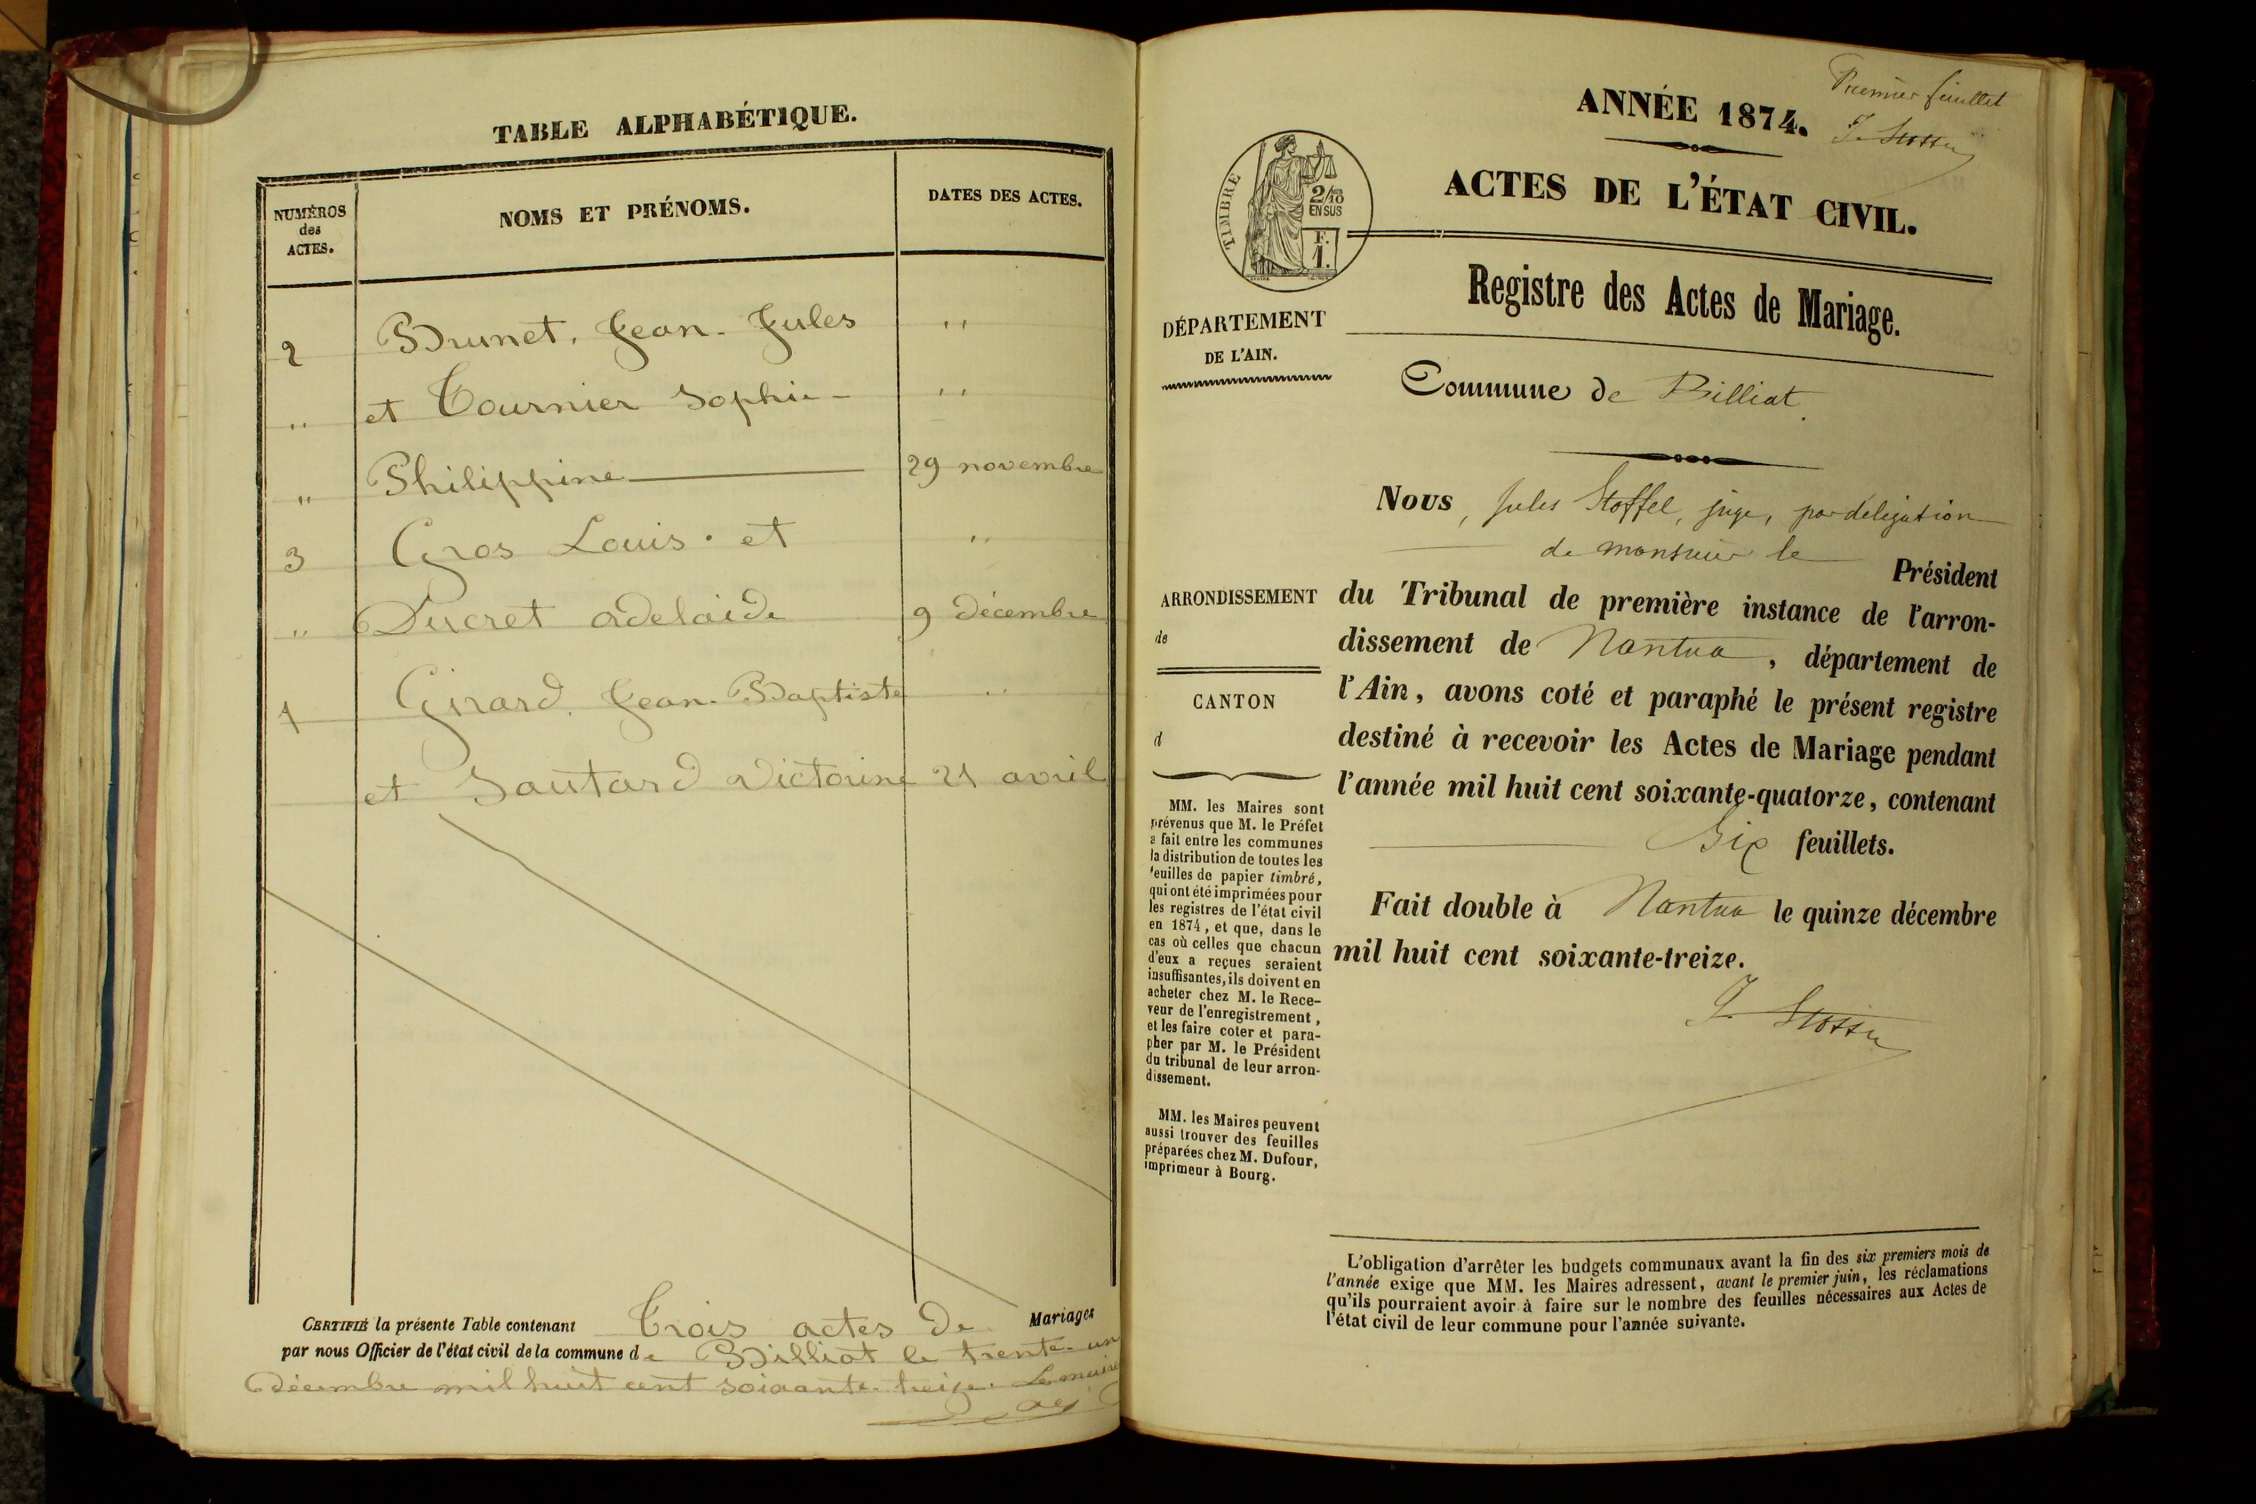 TABLE ALPHABÉTIQUE.
NUMÉROS
des
ACTES.
NOMS ET PRÉNOMS.
DATES DES ACTES.
2 Brunet, Jean-Jules "
" et Tournier Sophie - "
" Philippine 29 novembre
3 Gros Louis. et "
" Ducret adelaide 9 décembre
1 Girard Jean-Baptiste "
et Sautard Victorine 21 avril
CERTIFIÉ la présente Table contenant Trois actes de Mariages
par nous Officier de l'état civil de la commune de Billiat le trente-un
décembre mil huit cent soixante-treize. Le maire
Premier feuillet
ANNÉE 1874.
ACTES DE L'ÉTAT CIVIL.
TIMBRE
2/10
EN SUS
F.
1.
Registre des Actes de Mariage.
DÉPARTEMENT
DE L'AIN.
Commune de Billiat.
Nous, Jules Stoffel, juge, par délégation
de monsieur le Président
du Tribunal de première instance de l'arron-
dissement de Nantua, département de
l'Ain, avons coté et paraphé le présent registre
destiné à recevoir les Actes de Mariage pendant
l'année mil huit cent soixante-quatorze, contenant
Six feuillets.
Fait double à Nantua le quinze décembre
mil huit cent soixante-treize.
ARRONDISSEMENT
de
CANTON
d
MM. les Maires sont
prévenus que M. le Préfet
a fait entre les communes
la distribution de toutes les
feuilles de papier timbré,
qui ont été imprimées pour
les registres de l'état civil
en 1874, et que, dans le
cas où celles que chacun
d'eux a reçues seraient
insuffisantes, ils doivent en
acheter chez M. le Rece-
veur de l'enregistrement,
et les faire coter et para-
pher par M. le Président
du tribunal de leur arron-
dissement.
MM. les Maires peuvent
aussi trouver des feuilles
préparées chez M. Dufour,
imprimeur à Bourg.
L'obligation d'arrêter les budgets communaux avant la fin des six premiers mois de
l'année exige que MM. les Maires adressent, avant le premier juin, les réclamations
qu'ils pourraient avoir à faire sur le nombre des feuilles nécessaires aux Actes de
l'état civil de leur commune pour l'année suivante.